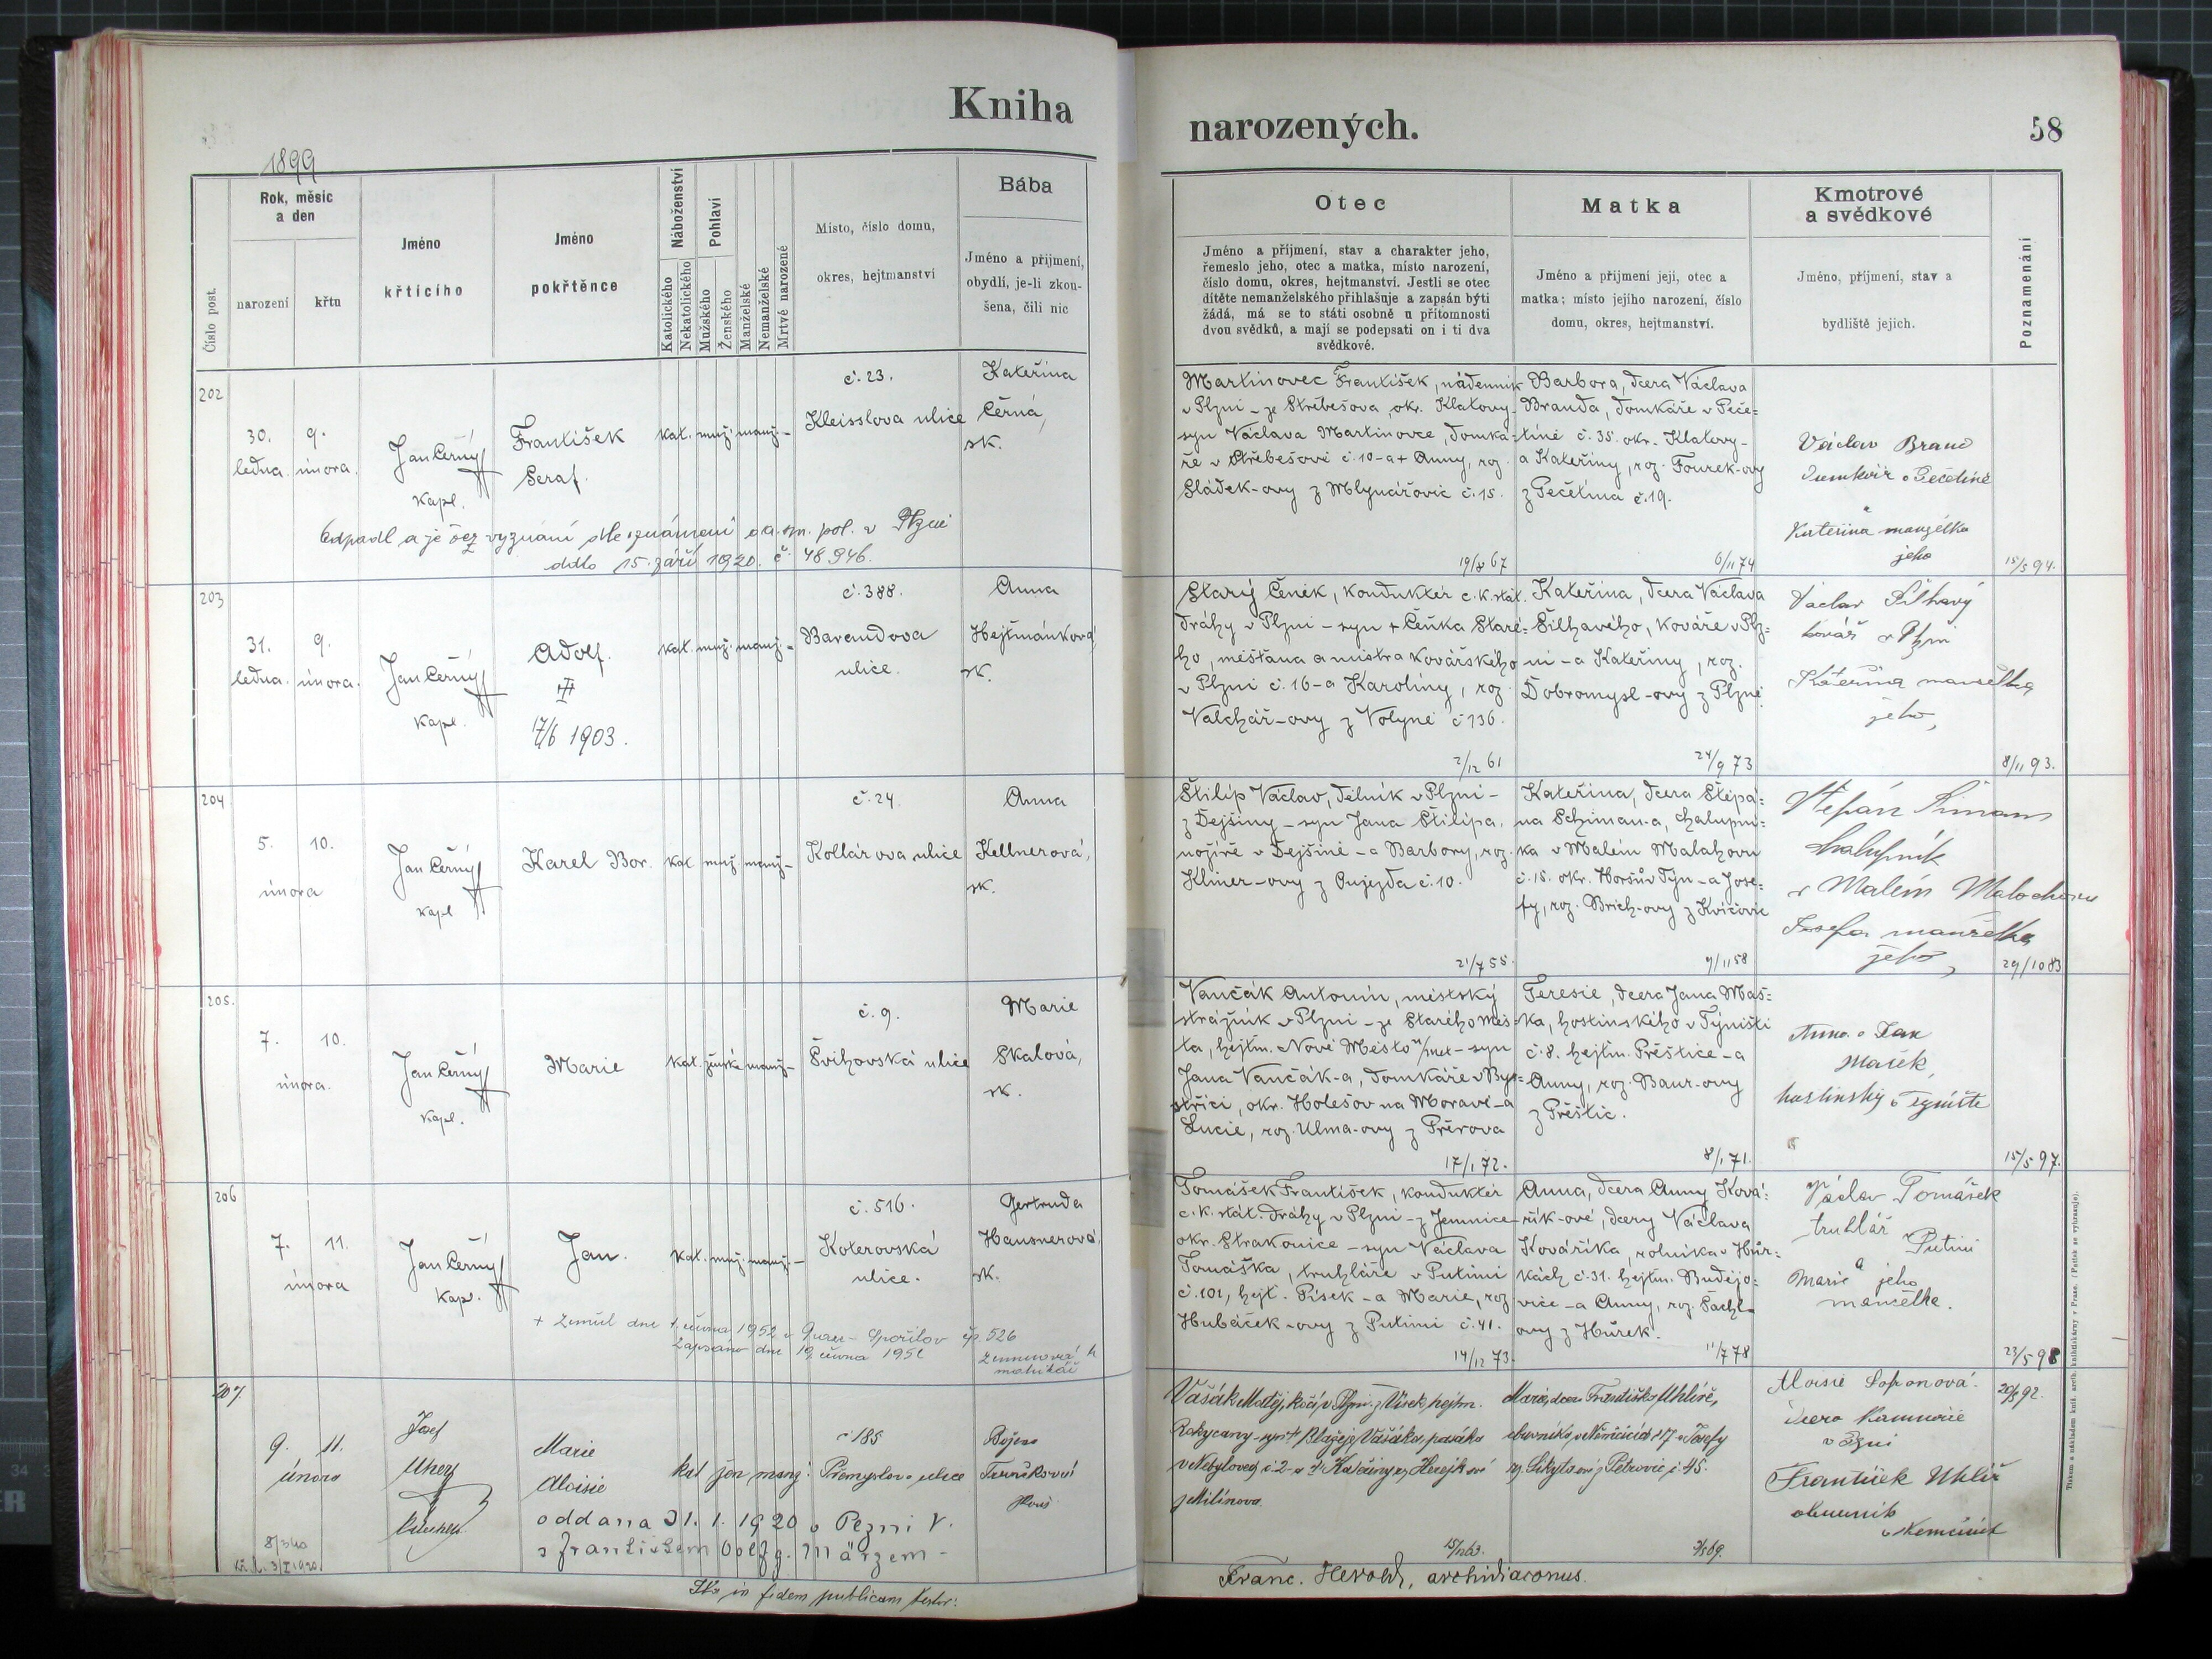 Kniha
narozených.
58
1899
Číslo post.
Rok, měsíc
a den
narození
křtu
Jméno
křtícího
Jméno
pokřtěnce
Náboženství
Katolického
Nekatolického
Pohlaví
Mužského
Ženského
Manželské
Nemanželské
Mrtvě narozené
Místo, číslo domu,
okres, hejtmanství
Bába
Jméno a příjmení,
obydlí, je-li zkou-
šena, čili nic
Otec
Jméno a příjmení, stav a charakter jeho,
řemeslo jeho, otec a matka, místo narození,
číslo domu, okres, hejtmanství. Jestli se otec
dítěte nemanželského přihlašuje a zapsán býti
žádá, má se to státi osobně u přítomnosti
dvou svědků, a mají se podepsati on i ti dva
svědkové.
Matka
Jméno a příjmení její, otec a
matka; místo jejího narození, číslo
domu, okres, hejtmanství.
Kmotrové
a svědkové
Jméno, příjmení, stav a
bydliště jejich.
Poznamenání
202
30. ledna.
9. února.
Jan Černý
kapl.
František
Seraf.
kat. muž. manž. -
č. 23.
Kleisslova ulice
Kateřina
Černá,
zk.
Odpadl a je bez vyznání dle oznámení pol. v Plzni
ddto 15. září 1920. č. 48.946.
Martinovec František, nádenník
v Plzni - ze Střebešova, okr. Klatovy-
syn Václava Martinovce, domká-
ře v Střebešově č. 10 - a + Anny, roz.
Sládek-ovy z Mlynářovic č. 15.
19/8 67
Barbora, dcera Václava
Branda, domkáře v Peče-
tíně č. 35. okr. Klatovy -
a Kateřiny, roz. Fourek-ovy
z Pečetína č. 19.
6/11 74
Václav Brand
domkář v Pečetíně
a
Kateřina manželka
jeho
15/5 94.
203
31. ledna.
9. února.
Jan Černý
kapl.
Adolf.
17/6 1903.
kat. muž. manž. -
č. 388.
Barandova
ulice.
Anna
Hejtmánková,
zk.
Starý Čeněk, konduktér c. k. stát.
dráhy v Plzni - syn + Čeňka Staré-
ho, měšťana a mistra kovářského
v Plzni č. 16 - a Karolíny, roz.
Valchář-ovy z Volyně č. 136.
2/12 61
Kateřina, dcera Václava
Šilhavého, kováře v Plz-
ni - a Kateřiny, roz.
Dobromysl-ovy z Plzně.
24/9 73
Václav Šilhavý
kovář v Plzni
Kateřina manželka
jeho,
8/11 93.
204
5. února
10.
Jan Černý
kapl
Karel Bor.
kat. muž. manž. -
č. 24.
Kollárova ulice
Anna
Kellnerová,
zk.
Štilip Václav, dělník v Plzni -
z Dejšiny - syn Jana Štilipa,
nožíře v Dejšině - a Barbory, roz.
Kliner-ovy z Oujezda č. 10.
21/7 55.
Kateřina, dcera Štěpá-
na Schiman-a, chalupní-
ka v Malém Malahovu
č. 15. okr. Horšův Týn - a Jose-
fy, roz. Brich-ovy z Kvíčovic
9/11 58
Štěpán Šimann
chalupník
v Malém Malochovu
Josefa manželka
jeho,
29/10 83
205.
7. února.
10.
Jan Černý
kapl.
Marie
kat. ženské manž. -
č. 9.
Švihovská ulice
Marie
Skalová,
zk.
Vančák Antonín, městský
strážník v Plzni - ze Starého Měs-
ta, hejtm. Nové Město n/Met - syn
Jana Vančák-a, domkáře v Bys-
střici, okr. Holešov na Moravě - a
Lucie, roz. Ulma-ovy z Přerova
17/1 72.
Teresie, dcera Jana Maš-
ka, hostinského v Týništi
č. 8. hejtm. Přeštice - a
Anny, roz. Baur-ovy
z Přeštic.
8/1 71.
Anna a Jan
Mašek,
hostinský v Týniště
15/5 97.
206
7. února
11.
Jan Černý
kapl.
Jan.
kat. muž. manž. -
č. 516.
Koterovská
ulice.
Gertruda
Hausnerová,
zk.
+ Zemřel dne 1. června 1952 v Praze - Spořilov čp. 526
Zapsáno dne 19. června 1952
matrikář
Tomášek František, konduktér
c. k. stát. dráhy v Plzni - z Jemnice
okr. Strakonice - syn Václava
Tomáška, truhláře v Putimi
č. 101, hejt. Písek - a Marie, roz
Hubáček-ovy z Putimi č. 41.
14/12 73.
Anna, dcera Anny Ková-
řík-ové, dcery Václava
Kováříka, rolníka v Hůr-
kách č. 31. hejtm. Budějo-
vice - a Anny, roz. Šachl-
ovy z Hůrek.
11/7 78
Václav Tomášek
truhlář
v Putimi
a
Marie jeho
manželka.
23/5 98
207.
9. února
11.
Josef
Marie
Aloisie
kat žen manž.
č 185
Přemyslova ulice
Božena
Turníková
8/340
3/II 1920.
oddána 31. 1. 1920 v Plzni V.
s Františkem Wolfg. Märzem -
Vašák Matěj, kočí v Plzni z Vísek, hejtm.
Rokycany - syn + Blažeje Vašáka, pasáka
v Nebílovech č. 2 - a + Kateřiny roz. Herejkové
z Milínova.
15/2 63.
Marie, dcera Františka Uhlíře,
obuvníka v Němčicích č 17 a Josefy
roz. Sikytovy z Petrovic č. 45.
3/5 69.
Aloisie Soponová
dcera
v Plzni
František Uhlíř
obuvník
v Němčicích
20/8 92.
Ita in fidem publicam testor:
Franc. Herold, archidiaconus.
Tiskem a nákladem kníž. arcib. knihtiskárny v Praze. (Patisk se vyhrazuje).